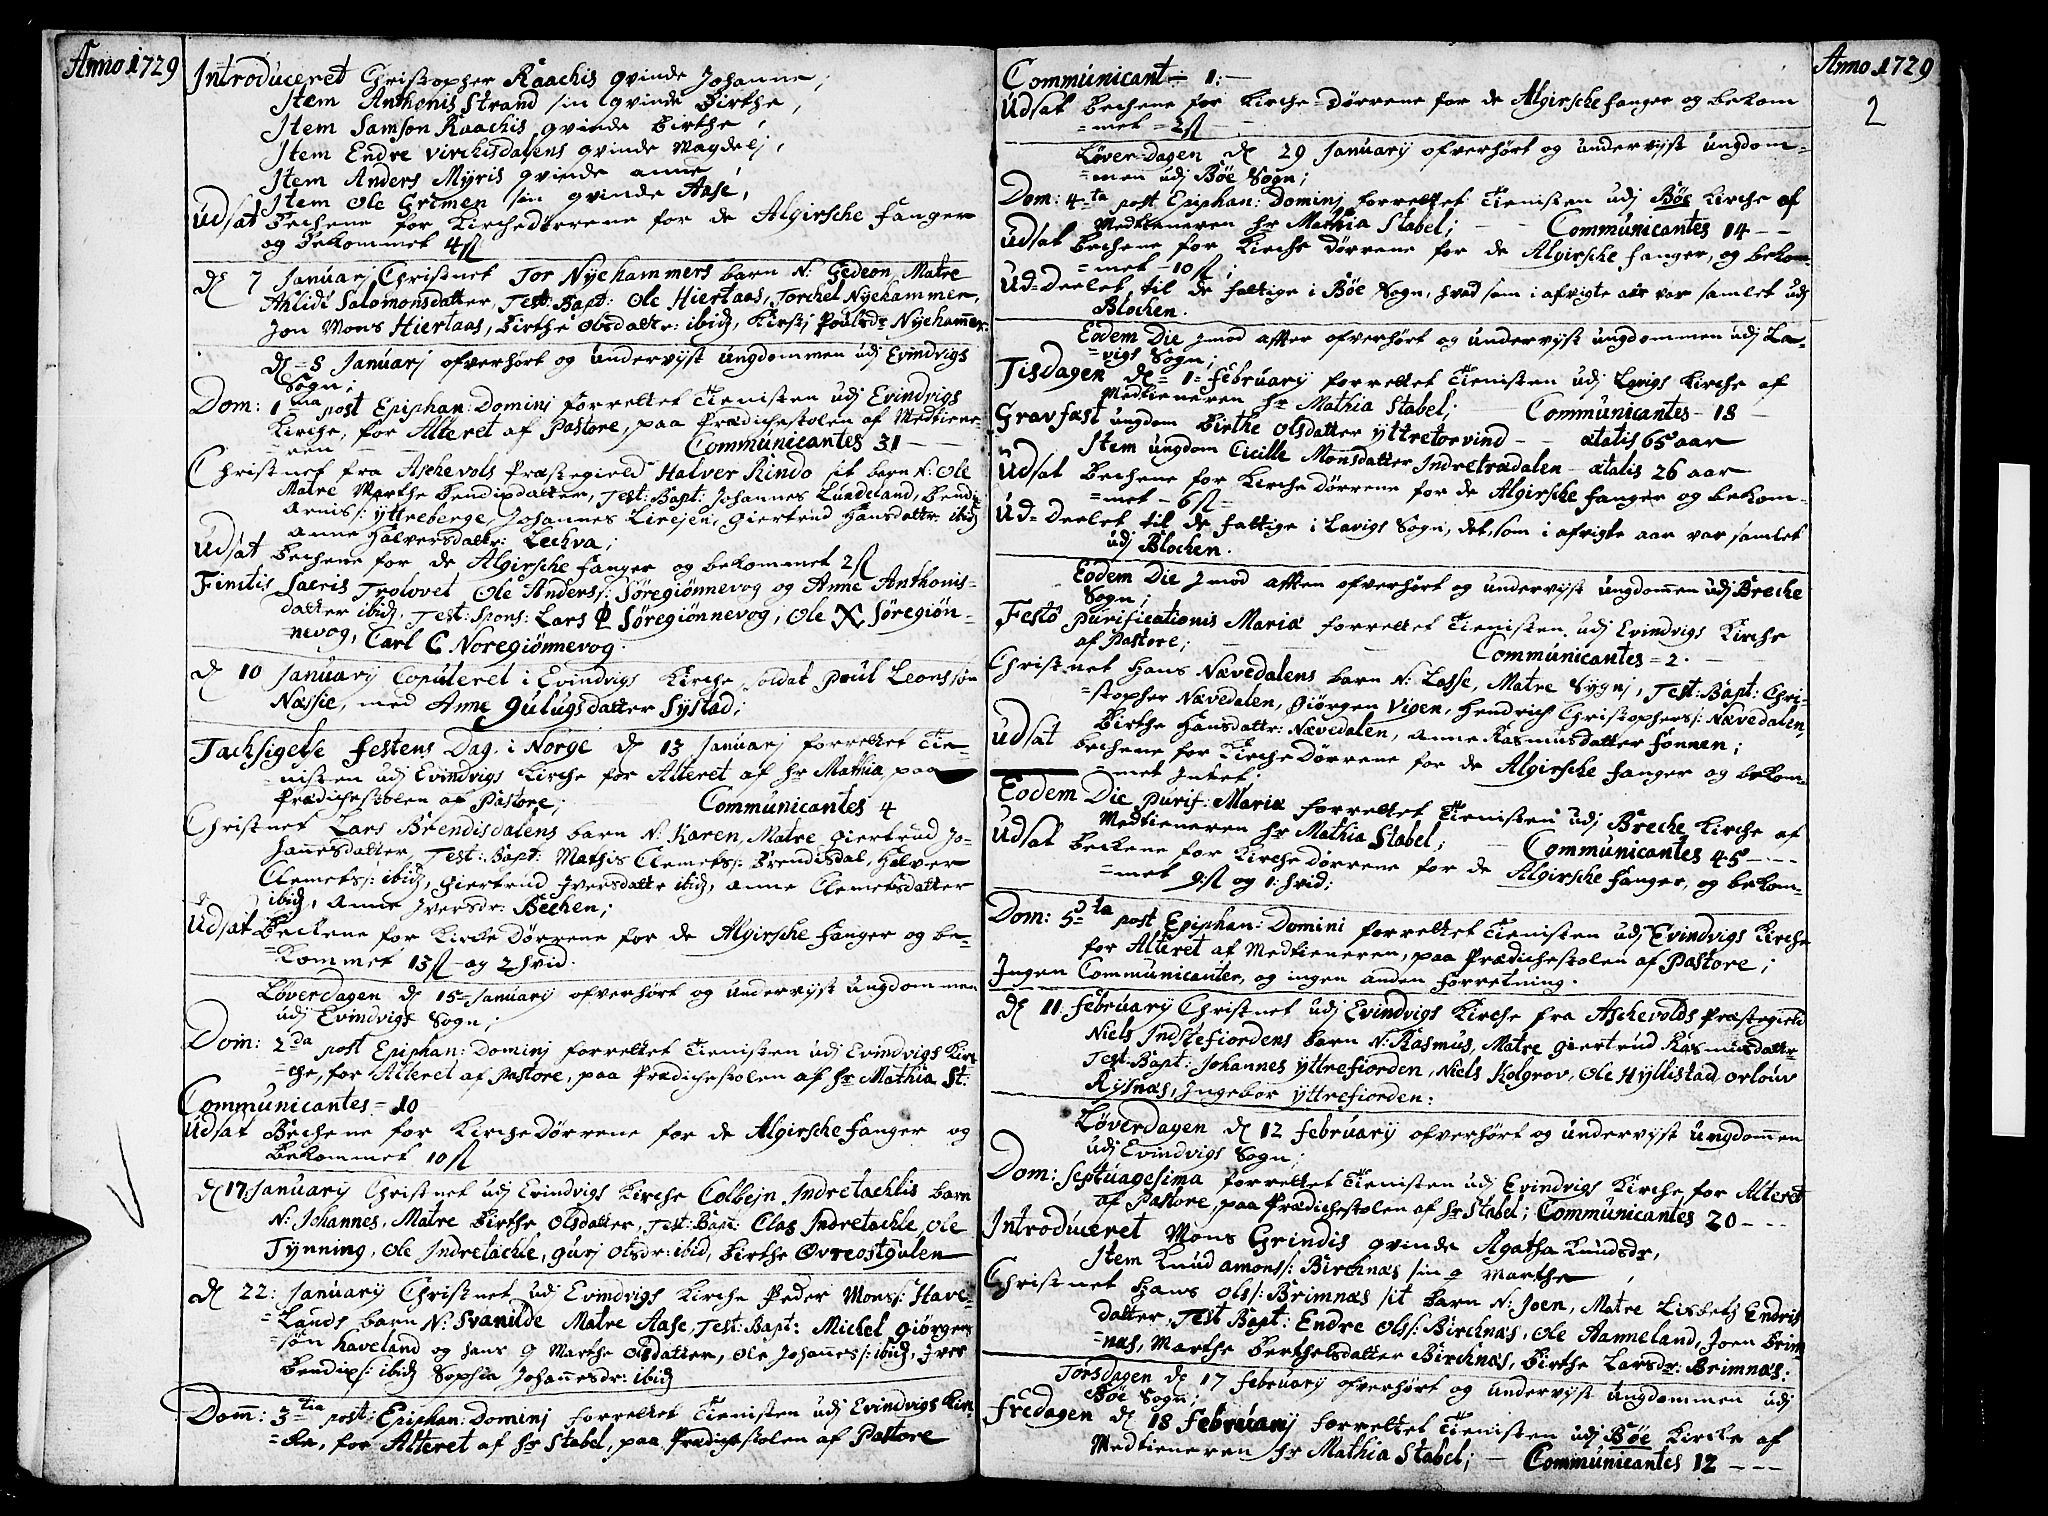 Anno 1729
Introduceret Christopher Raachis qvinde Johanne,
Item Anthonis Strand sin qvinde Birthe,
Item Samson Raachis qvinde Birthe,
Item Endre Virchisdalens qvinde Magdelj,
Item Anders Myris qvinde Anne,
Item Ole Grimen sin qvinde Aase,
Udsat Bechene for Kirchedørrene for de Algirsche Fanger
og Bekommet 4 ß
d 7 Januarj Christnet Tor Nyehammers barn N: Gedeon, Matre
Ahlidi Salomonsdatter, Test: Bapt: Ole Hiertaas, Torchel Nyehammer,
Jon Mons Hiertaas, Birthe Olsdattr: ibid, Kirstj Poulsdr Nyehammer:
d = 8 Januarj ofverhørt og undervjst ungdommen udj Evindvigs
Sogn;
Dom: 1 ma post Epiphan: Dominj forrettet Tienisten udj Evindvigs
Kirche, for Alteret af Pastore, paa Prædichestolen af Medtiene=
ren Communicantes 31
Christnet fra Aschevols Præstegield Halver Rindø sit barn N: Ole
Matre Marthe Bendixdatter, Test: Bapt: Johannes Lundeland, Bendix
Arnis: Yttreberge, Johannes Lirejen, Giertrud Hansdattr: ibid
Anne Halversdattr: Lechva;
Udsat Bechene for de Algirsche Fanger og bekommet 2 ß
Finitis Sacris Trolovet Ole Anders: Søregiønnevog og Anne Anthonis=
datter ibid, Test: Spons: Lars Søregiønnevog, Ole X Søregiøn=
nevog, Carl C Noregiønnevog.
d 10 Januarij Copuleret i Evindvigs Kirche, soldat Poul Leonssøn
Næssie, med Anne Gulugsdatter Systad;
Tachsigelse Festens Dag i Norge d 13 Januarj forrettet Tie=
nisten udj Evindvigs Kirche for Alteret af Hr Mathia paa
Prædichestolen af Pastore; Communicantes 4
Christnet Lars Brendisdalens barn N: Karen, Matre Giertrud Jo=
hannesdatter, Test: Bapt: Mathis Clemets: Brendisdal, Halver
Clemets: ibid, Giertrud Iversdattr ibid, Anne Clemetsdatter
ibid, Anne Iversdr: Bechen;
Udsat Bechene for Kirche Dørrene for de Algirsche Fanger og be=
kommet 13 ß og 2 hvid.
Løverdagen d 15 Januarij ofverhørt og undervjst ungdommen
udj Evindvigs Sogn;
Dom: 2 da post Epiphan: Dominj forrettet Tienisten udj Evindvigs Kir=
che, for Alteret af Pastore, paa Prædichestolen af Hr Mathia St:
Communicantes = 10
Udsat Bechene for Kirche Dørrene for de Algirsche Fanger og
Bekommet 10 ß
d 17 Januarij Christnet udj Evindvigs Kirche Colbejn Indretachlis barn
N: Johannes, Matre Birthe Olsdatter, Test: Bapt: Clas Indretachle, Ole
Tynning, Ole Indretachle, Gurj Olsdr: ibid, Birthe Øvreostgulen
d 22: Januarij Christnet udj Evindvigs Kirche Peder Mons: Have=
lands barn N: Svanilde Matre Aase, Test: Bapt: Michel Giørgen
søn haveland og hans q Marthe Olsdatter, Ole Johannes: ibid, Iver
Bendix: ibid Sophia Johannesdr: ibid
Dom: 3 tia post: Epiphan: Dominj forrettet Tienisten udj Evindvigs Kir=
=che, for Alteret af Hr Stabel, paa Prædichestolen af Pastore
Anno 1729
2
Communicant — 1: —
Udsat bechene for Kirche=Dørrene for de Algirsche fanger og bekom
=met = 2 ß
Løver-Dagen d 29 Januarij ofverhørt og undervjst ungdom=
=men udj Bøe Sogn;
Dom: 4 ta post Epiphan: Dominj forrettet Tienisten udj Bøe Kirche af
Medtieneren Hr Mathia Stabel; Communicantes 14
Udsat Bechene for Kirche Dørrene for de Algirsche fanger, og bekom=
=met — 10 ß
Ud-Deelet til de fattige i Bøe Sogn, hvad som i afvigte aar var samlet udj
Blochen.
Eodem Die imod afften ofverhørt og undervjst ungdommen udj La=
=vigs Sogn;
Tisdagen d = 1 = Februarij forrettet Tienisten udj Lavigs Kirche af
Medtieneren Hr Mathia Stabel; Communicantes — 18
Gravfæst ungdom Birthe Olsdatter Yttretorvind — ætatis 65 aar
Item ungdom Cicille Monsdatter Indretrædalen — ætatis 26 aar
Udsat Bechene for Kirche Dørrene for de Algirsche fanger og bekom=
=met — 6 ß
Ud=Deelet til de fattige i Lavigs Sogn, det, som i afvigte aar var samlet
udj Blochen.
Eodem Die imod afften ofverhørt og undervjst ungdommen udj Breche
Sogn;
Festo Purificationis Mariæ forrettet Tienisten udj Evindvigs Kirche
af Pastore; Communicantes = 2.
Christnet Hans Nævedalens barn N: Lasse, Matre Sygnj, Test: Bapt: Chri=
=stopher Nævedalen, Giørgen Vigen, Hendrich Christophers: Nævedalen,
Birthe Hansdattr: Nævedalen, Anne Rasmusdatter Sønnen;
Udsat bechene for Kirche Dørrene for de Algirsche fanger og bekom=
met Intet.
Eodem Die Purif: Mariæ forrettet Tienisten udj Breche Kirche af
Medtieneren Hr Mathia Stabel; Communicantes 45
Udsat Bechene for Kirche Dørrene for de Algirsche fanger, og bekom=
=met 9 ß og 1 hvid;
Dom: 5 ta post Epiphan: Domini forrettet Tienisten udj Evindvigs Kirche
for Alteret af Medtieneren, paa Prædichestolen af Pastore;
Ingen Communicanter, og ingen anden forretning.
d 11 Februarij Christnet udj Evindvigs Kirche fra Aschevolds Præstegield
Niels Indrefiordens barn N: Rasmus, Matre Giertrud Rasmusdattr
Test: Bapt: Johannes Yttrefiorden, Niels Kolgrov, Ole Hyllistad, Orlouv
Rysnæs, Ingebor Yttrefiorden:
Løverdagen d 12 Februarij ofverhørt og undervjst ungdommen
udj Evindvigs Sogn;
Dom: Septuagesima forrettet Tienisten udj Evindvigs Kirche, for Alteret
af Pastore, paa Prædichestolen af Hr Stabel; Communicantes 20
Introduceret Mons Grindis qvinde Agatha Knudsdr,
Item Knud Amons: Birchnæs sin q Marthe,
Christnet Hans Ols: Brimnæs sit barn N: Joen, Matre Lisbeth Endris
datter, Test Bapt: Endre Ols: Birchnæs, Ole Aanneland, Joen Brim=
=næs, Marthe Berthelsdatter Birchnæs, Birthe Larsdr: Brimnæs:
Torsdagen d 17 Februarij ofverhørt og undervjst ungdommen udj
Bøe Sogn;
Fredagen d 18 Februarij forrettet Tienisten udj Bøe Kirche af
Medtieneren Hr Mathia Stabel; — Communicantes 12